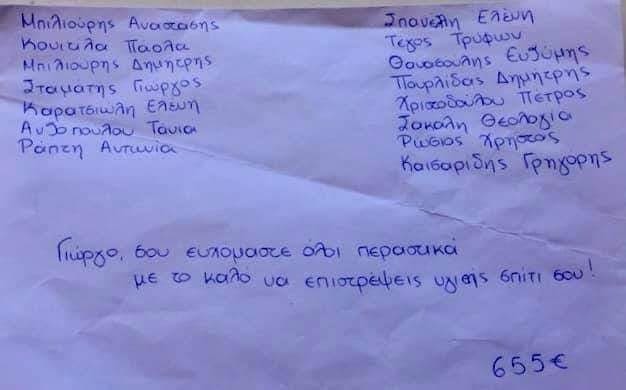 Μπιλιούρης Αναστάσης
Κουτελα Πάολα
Μπιλιούρης Δημήτρης
Σταματης Γιώργος
Καρατσιώλη Ελένη
Ανθοπούλου Τάνια
Ράπτη Αντωνία
Σπανέλη Ελένη
Τέγος Τρύφων
Θανασούλης Ευθύμης
Πουρλίδας Δημήτρης
Χριστοδούλου Πέτρος
Σακαλη Θεολογία
Ρώσιος Χρήστος
Καισαρίδης Γρηγόρης
Γιώργο, σου ευχόμαστε όλοι περαστικά
με το καλό να επιστρέψεις υγιής σπίτι σου!
655€